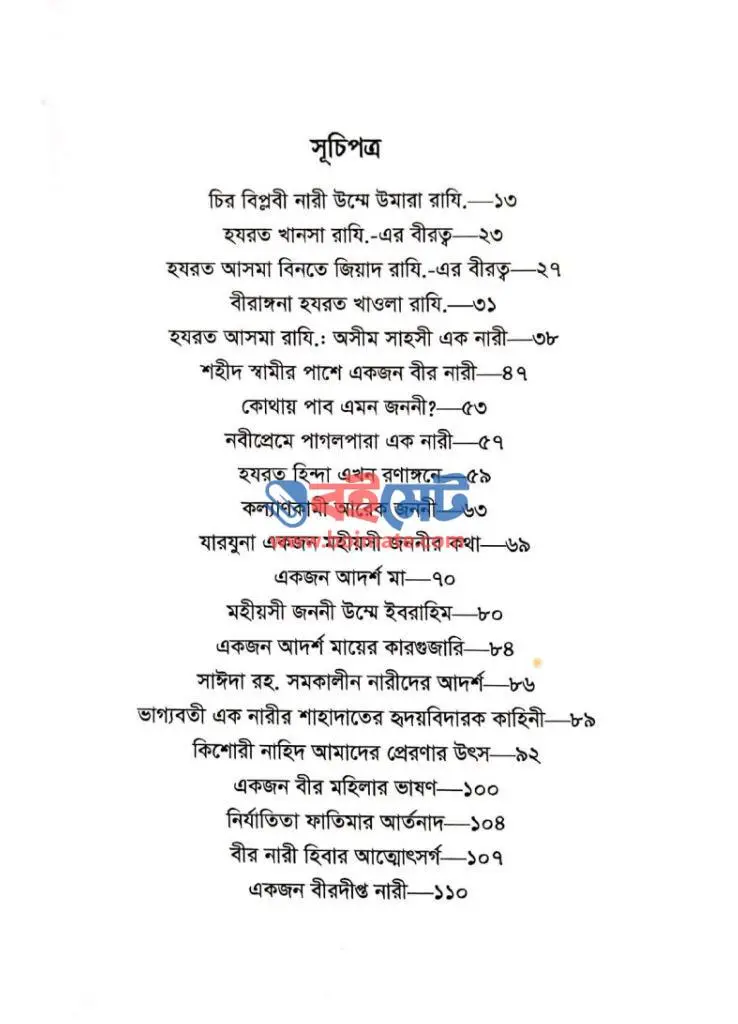 সূচিপত্র
চির বিপ্লবী নারী উম্মে উমারা রাযি.—১৩
হযরত খানসা রাযি.-এর বীরত্ব—২৩
হযরত আসমা বিনতে জিয়াদ রাযি.-এর বীরত্ব—২৭
বীরাঙ্গনা হযরত খাওলা রাযি.—৩১
হযরত আসমা রাযি.: অসীম সাহসী এক নারী—৩৮
শহীদ স্বামীর পাশে একজন বীর নারী—৪৭
কোথায় পাব এমন জননী?—৫৩
নবীপ্রেমে পাগলপারা এক নারী—৫৭
হযরত হিন্দা এখন রণাঙ্গনে—৫৯
বইমেট
কল্যাণকামী আরেক জননী—৬৩
www.boimate.com
যারযুনা একজন মহীয়সী জননীর কথা—৬৯
একজন আদর্শ মা—৭০
মহীয়সী জননী উম্মে ইবরাহিম—৮০
একজন আদর্শ মায়ের কারগুজারি—৮৪
সাঈদা রহ. সমকালীন নারীদের আদর্শ—৮৬
ভাগ্যবতী এক নারীর শাহাদাতের হৃদয়বিদারক কাহিনী—৮৯
কিশোরী নাহিদ আমাদের প্রেরণার উৎস—৯২
একজন বীর মহিলার ভাষণ—১০০
নির্যাতিতা ফাতিমার আর্তনাদ—১০৪
বীর নারী হিবার আত্মোৎসর্গ—১০৭
একজন বীরদীপ্ত নারী—১১০